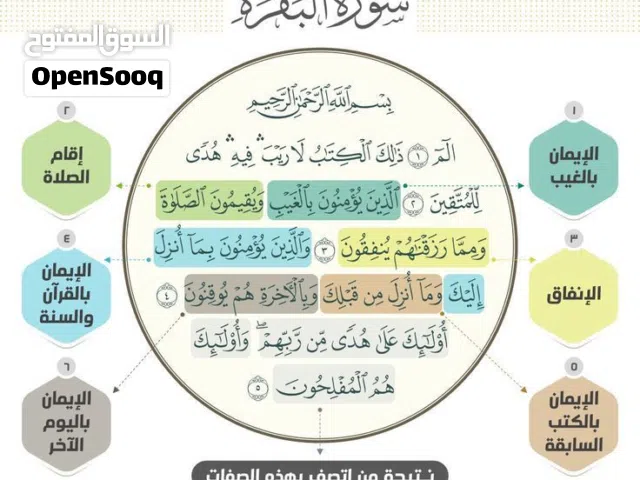 سورة البقرة
السوق المفتوح
OpenSooq
بِسْمِ اللَّهِ الرَّحْمَٰنِ الرَّحِيمِ
الٓمٓ ١ ذَٰلِكَ الْكِتَابُ لَا رَيْبَ ۛ فِيهِ ۛ هُدًى
لِّلْمُتَّقِينَ ٢ الَّذِينَ يُؤْمِنُونَ بِالْغَيْبِ وَيُقِيمُونَ الصَّلَاةَ
وَمِمَّا رَزَقْنَاهُمْ يُنفِقُونَ ٣ وَالَّذِينَ يُؤْمِنُونَ بِمَا أُنزِلَ
إِلَيْكَ وَمَا أُنزِلَ مِن قَبْلِكَ وَبِالْآخِرَةِ هُمْ يُوقِنُونَ ٤
أُولَٰئِكَ عَلَىٰ هُدًى مِّن رَّبِّهِمْ ۖ وَأُولَٰئِكَ
هُمُ الْمُفْلِحُونَ ٥
١
الإيمان
بالغيب
٢
إقام
الصلاة
٣
الإنفاق
٤
الإيمان
بالقرآن
والسنة
٥
الإيمان
بالكتب
السابقة
٦
الإيمان
باليوم
الآخر
نتيجة من اتصف بهذه الصفات